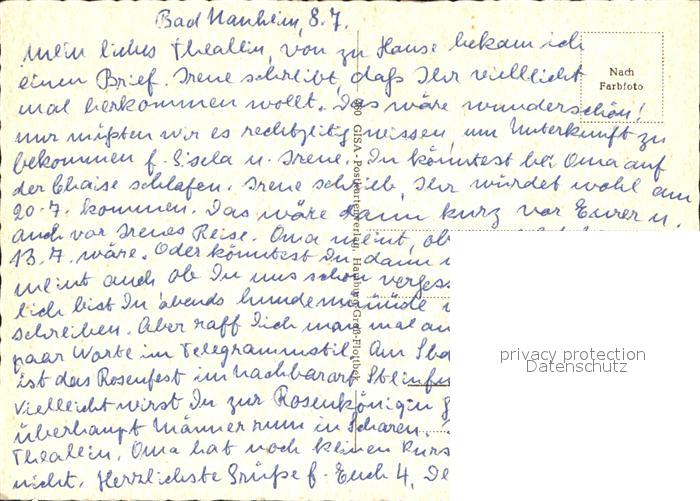 Bad Nauheim, 8.7.
Mein liebes Theallein, von zu Hause bekam ich
einen Brief. Irene schreibt, daß Ihr vielleicht
mal herkommen wollt. Das wäre wunderschön!
nur müßten wir es rechtzeitig wissen, um Unterkunft zu
bekommen f. Gisela u. Irene. Du könntest bei Oma auf
der Chaise schlafen. Irene schrieb, Ihr würdet wohl am
20.7. kommen. Das wäre dann kurz vor Eurer u.
auch vor Irenes Reise. Oma meint, ob
13.7. wäre. Oder könntest Du dann
meint auch ob Du uns schon verges
lich bist Du abends hundemüde
schreiben. Aber raff Dich man mal au
paar Worte im Telegrammstil. Am
ist das Rosenfest im Nachbarort Steinfu
vielleicht wirst Du zur Rosenkönigin
überhaupt Männer rum in Scharen.
Theallein. Oma hat noch keinen Kurs
nicht. Herzlichste Grüße f. Euch 4, De
Nach
Farbfoto
GISA-Postkartenverlag, Hamburg Groß-Flottbek
privacy protection
Datenschutz